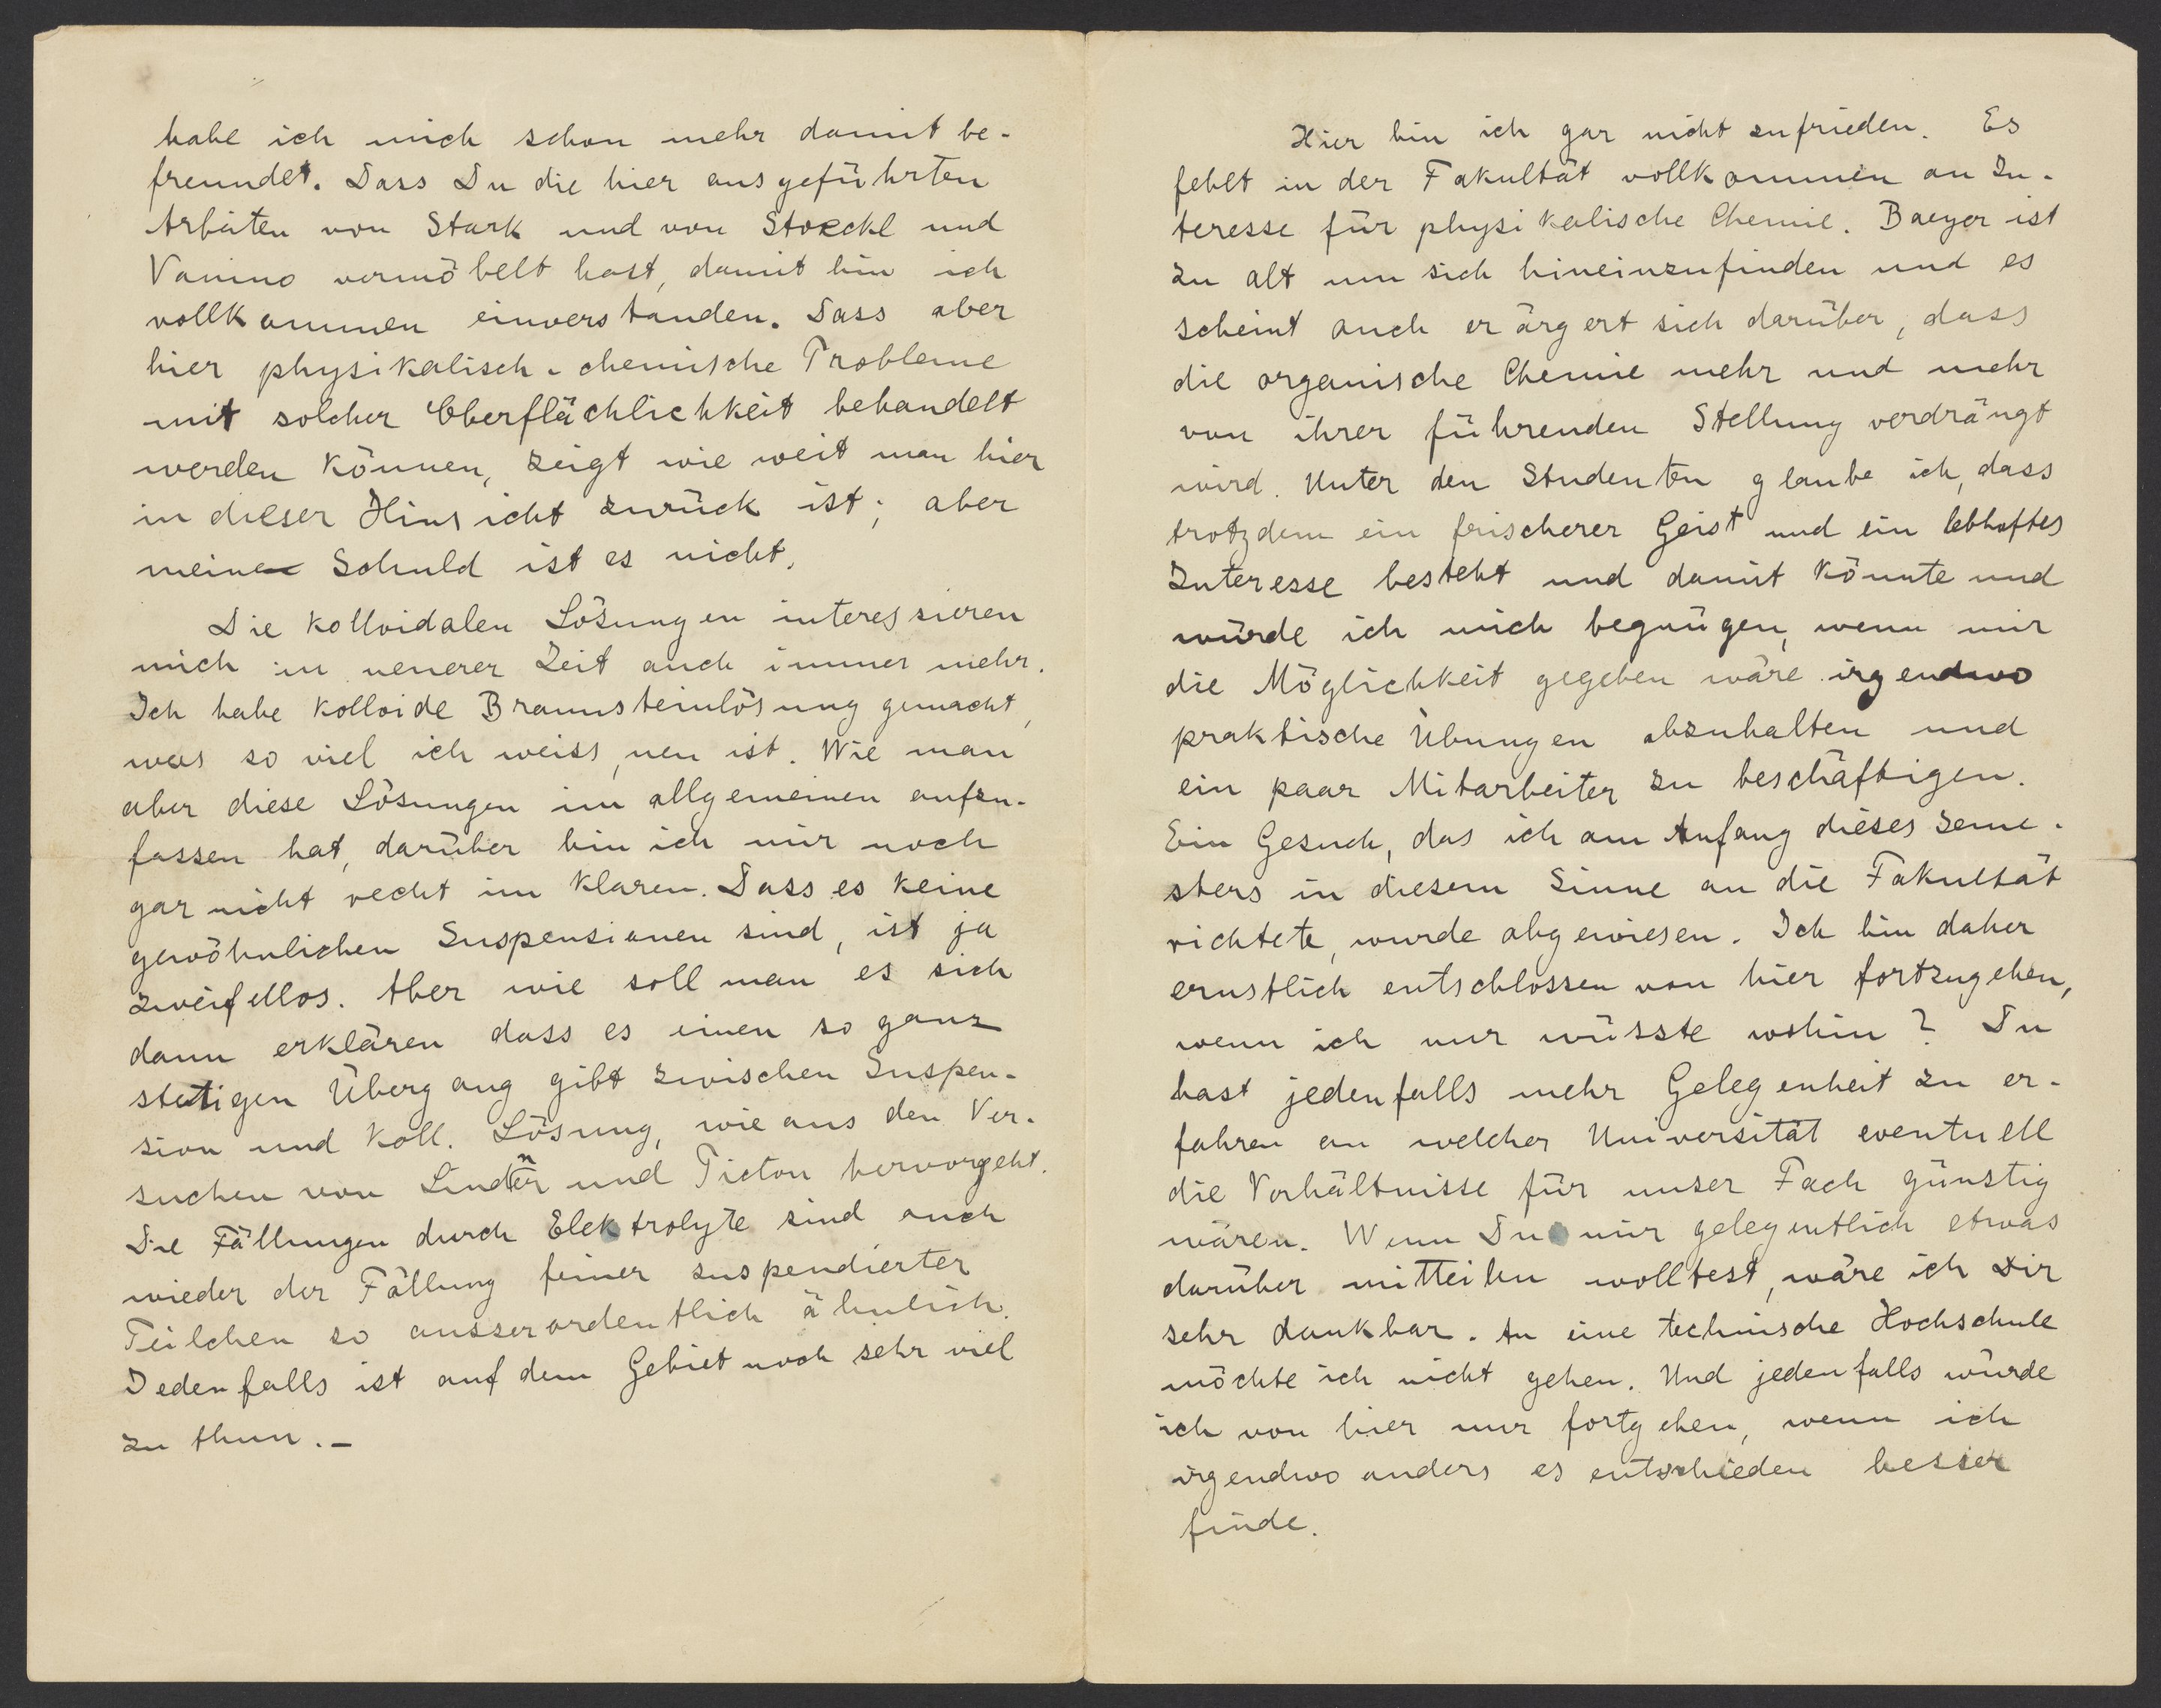 habe ich mich schon mehr damit be-
freundet. Dass Du die hier ausgeführten
Arbeiten von Stark und von Stoeckl und
Vanino vermöbelt hast, damit bin ich
vollkommen einverstanden. Dass aber
hier physikalisch-chemische Probleme
mit solcher Oberflächlichkeit behandelt
werden können, zeigt wie weit man hier
in dieser Hinsicht zurück ist; aber
meine Schuld ist es nicht.
Die kolloidalen Lösungen interessieren
mich in neuerer Zeit auch immer mehr.
Ich habe kolloide Braunsteinlösung gemacht,
was so viel ich weiss, neu ist. Wie man
aber diese Lösungen im allgemeinen aufzu-
fassen hat, darüber bin ich mir noch
gar nicht recht im klaren. Dass es keine
gewöhnlichen Suspensionen sind, ist ja
zweifellos. Aber wie soll man es sich
dann erklären dass es einen so ganz
stetigen Übergang gibt zwischen Suspen-
sion und koll. Lösung, wie aus den Ver-
suchen von Linder und Picton hervorgeht.
Die Fällungen durch Elektrolyte sind auch
wieder der Fällung feiner suspendierter
Teilchen so ausserordentlich ähnlich.
Jedenfalls ist auf dem Gebiet noch sehr viel
zu thun.-
Hier bin ich gar nicht zufrieden. Es
fehlt in der Fakultät vollkommen an In-
teresse für physikalische Chemie. Baeyer ist
zu alt um sich hineinzufinden und es
scheint auch er ärgert sich darüber, dass
die organische Chemie mehr und mehr
von ihrer führenden Stellung verdrängt
wird. Unter den Studenten glaube ich, dass
trotzdem ein frischerer Geist und ein lebhaftes
Interesse besteht und damit könnte und
würde ich mich begnügen, wenn mir
die Möglichkeit gegeben wäre irgendwo
praktische Übungen abzuhalten und
ein paar Mitarbeiter zu beschäftigen.
Ein Gesuch, das ich am Anfang dieses Seme-
sters in diesem Sinne an die Fakultät
richtete, wurde abgewiesen. Ich bin daher
ernstlich entschlossen von hier fortzugehen,
wenn ich nur wüsste wohin? Du
hast jedenfalls mehr Gelegenheit zu er-
fahren an welcher Universität eventuell
die Verhältnisse für unser Fach günstig
wären. Wenn Du mir gelegentlich etwas
darüber mitteilen wolltest, wäre ich Dir
sehr dankbar. An eine technische Hochschule
möchte ich nicht gehen. Und jedenfalls würde
ich von hier nur fortgehen, wenn ich
irgendwo anders es entschieden besser
finde.